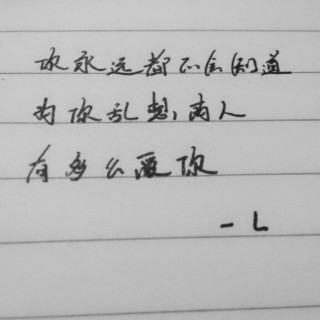 你永远都不会知道
为你乱想,两人
有多么爱你
- L